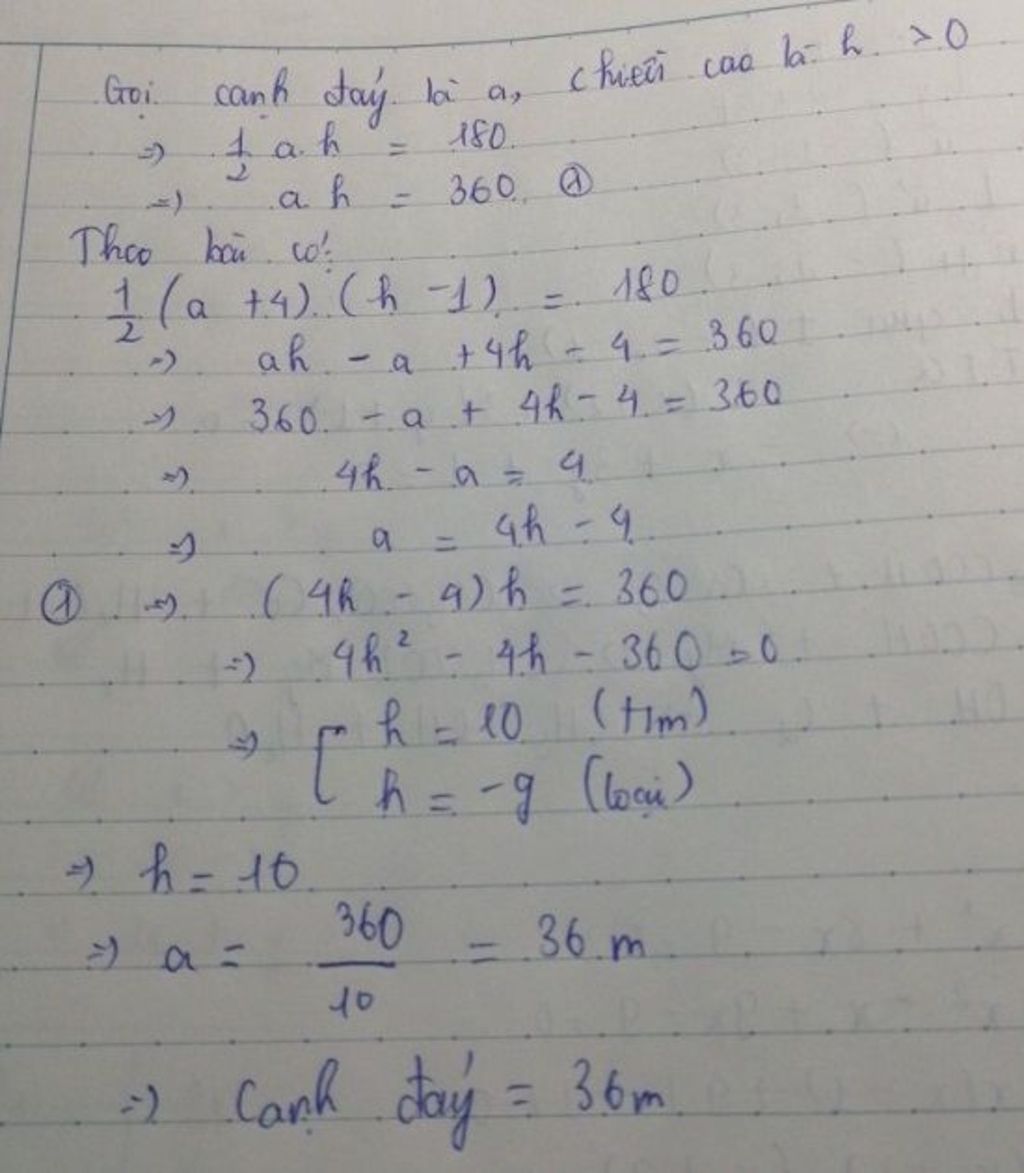 Gọi cạnh đáy là a, chiều cao là h > 0
=> 1/2 a.h = 180
=> ah = 360 ①
Theo bài có:
1/2 (a +4) (h -1) = 180
=> ah - a + 4h - 4 = 360
=> 360 - a + 4h - 4 = 360
=> 4h - a = 4
=> a = 4h - 4
① => (4h - 4) h = 360
=> 4h² - 4h - 360 = 0
=> [ h = 10 (t/m)
h = -9 (loại)
=> h = 10
=> a = 360/10 = 36 m
=> Cạnh đáy = 36m